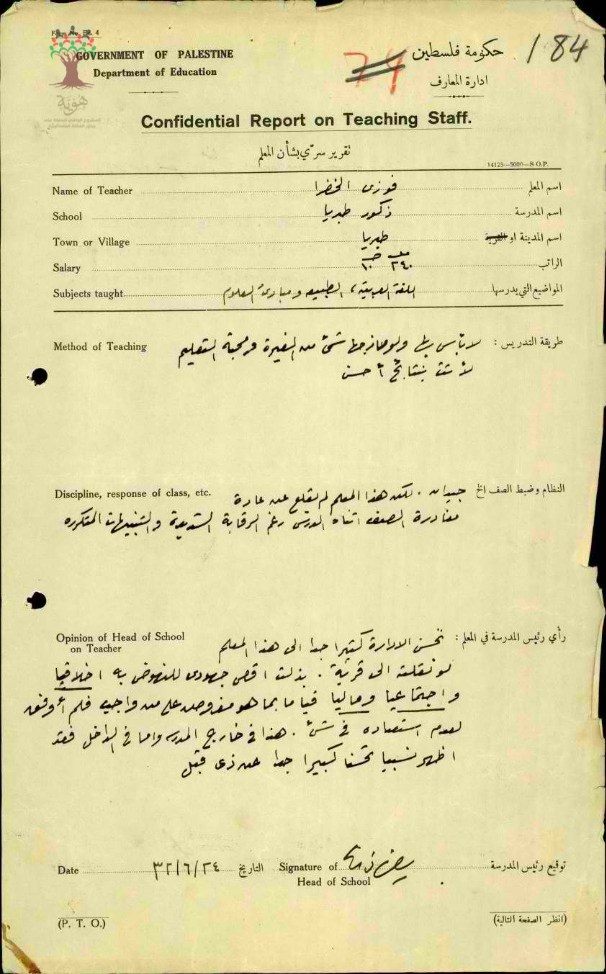 184
74
GOVERNMENT OF PALESTINE
Department of Education
حكومة فلسطين
ادارة المعارف
هوية
Confidential Report on Teaching Staff.
تقرير سرّي بشأن المعلم
14125—5000—S.O.P.
Name of Teacher فوزي الخضرا اسم المعلم
School ذكور طبريا اسم المدرسة
Town or Village طبريا اسم المدينة او القرية
Salary الراتب
Subjects taught اللغة العربية، الطبيعة ومبادئ العلوم المواضيع التي يدرسها
Method of Teaching لا بأس بها ولو مازجها شئ من الغيرة ومحبة التعليم طريقة التدريس :
لأتت بنتائج أحسن
Discipline, response of class, etc. جيدان . لكن هذا المعلم لم يقلع عن عادة النظام وضبط الصف الخ
مغادرة الصف اثناء الدرس رغم الرقابة الشديدة والتنبيهات المتكرره
Opinion of Head of School on Teacher تحسن الادارة كثيرا جدا الى هذا المعلم رأي رئيس المدرسة في المعلم :
لو نقلته الى قرية . بذلت اقصى جهودي للنهوض به اخلاقيا
واجتماعيا وماليا قياما بما هو مفروض علي من واجب فلم أوفق
لعدم استعداده في شئ . هذا في خارج المدرسة واما في الداخل فقد
اظهر نسبيا تحسنا كبيرا جدا عن ذي قبل
Date ٣٢/٦/٢٤ التاريخ Signature of Head of School توقيع رئيس المدرسة
(P. T. O.)
(انظر الصفحة التالية)